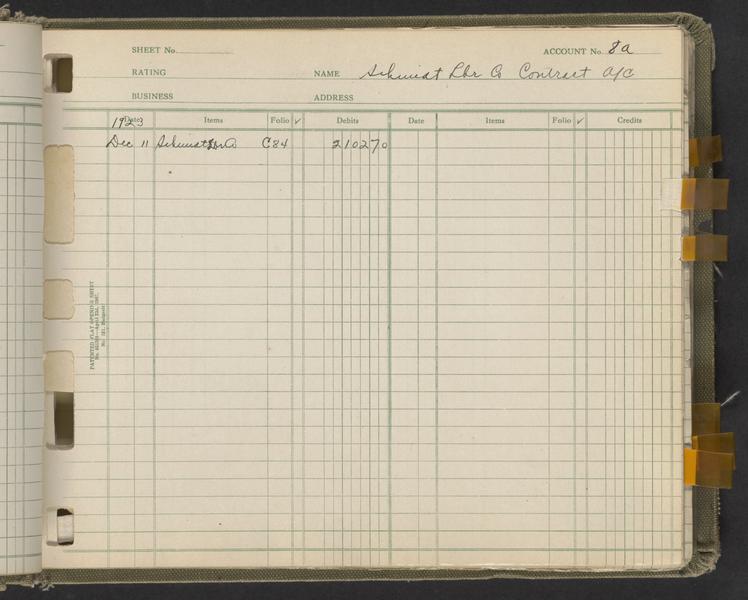 SHEET No. ACCOUNT No. 8a
RATING NAME Schmiat Lbr Co Contract A/C
BUSINESS ADDRESS
1923
Date Items Folio ✓ Debits Date Items Folio ✓ Credits
Dec 11 Schmiat Lbr Co C84 210270
PATENTED FLAT OPENING SHEET